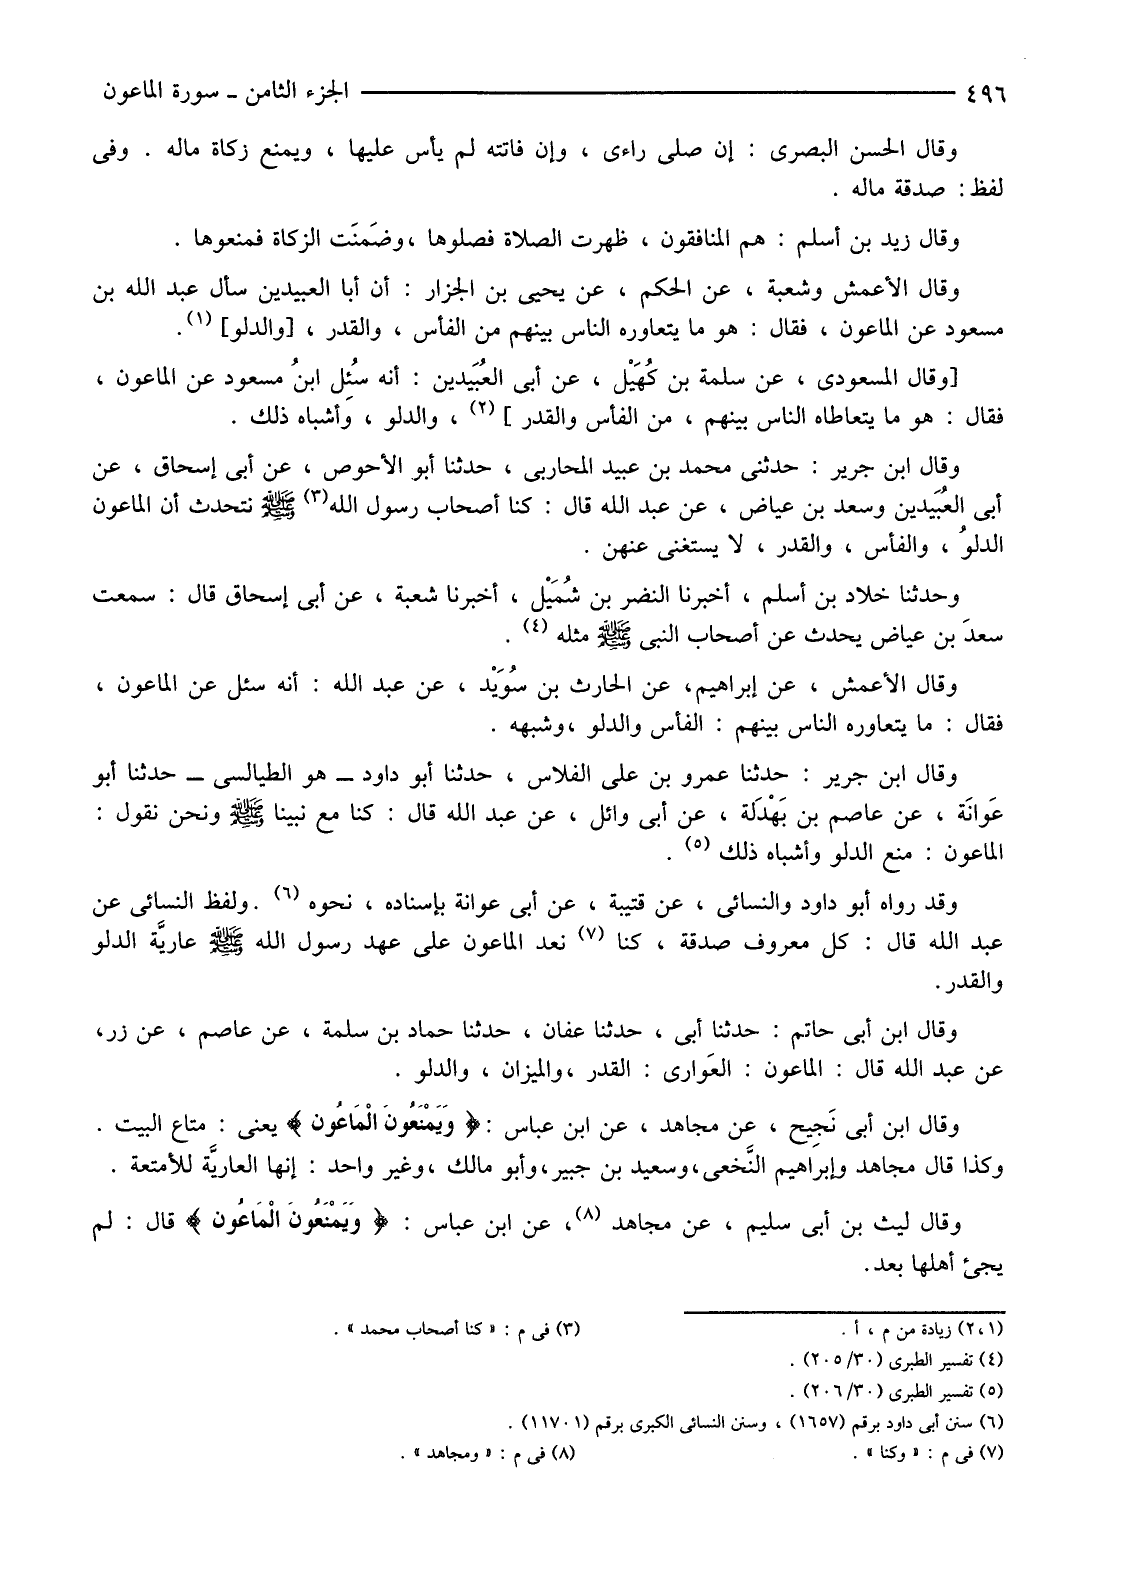 ٤٩٦ ــــــــــــــــــــــــ الجزء الثامن ـ سورة الماعون
وقال الحسن البصرى : إن صلى راءى ، وإن فاتته لم يأس عليها ، ويمنع زكاة ماله . وفى
لفظ : صدقة ماله .
وقال زيد بن أسلم : هم المنافقون ، ظهرت الصلاة فصلوها ،وضَمنَت الزكاة فمنعوها .
وقال الأعمش وشعبة ، عن الحكم ، عن يحيى بن الجزار : أن أبا العبيدين سأل عبد الله بن
مسعود عن الماعون ، فقال : هو ما يتعاوره الناس بينهم من الفأس ، والقدر ، [والدلو] (١).
[وقال المسعودى ، عن سلمة بن كُهَيْل ، عن أبى العُبَيدين : أنه سُئِل ابنُ مسعود عن الماعون ،
فقال : هو ما يتعاطاه الناس بينهم ، من الفأس والقدر ] (٢) ، والدلو ، وأشباه ذلك .
وقال ابن جرير : حدثنى محمد بن عبيد المحاربى ، حدثنا أبو الأحوص ، عن أبى إسحاق ، عن
أبى العُبَيدين وسعد بن عياض ، عن عبد الله قال : كنا أصحاب رسول الله(٣) ﷺ نتحدث أن الماعون
الدلوُ ، والفأس ، والقدر ، لا يستغنى عنهن .
وحدثنا خلاد بن أسلم ، أخبرنا النضر بن شُمَيْل ، أخبرنا شعبة ، عن أبى إسحاق قال : سمعت
سعدَ بن عياض يحدث عن أصحاب النبى ﷺ مثله (٤) .
وقال الأعمش ، عن إبراهيم، عن الحارث بن سُوَيْد ، عن عبد الله : أنه سئل عن الماعون ،
فقال : ما يتعاوره الناس بينهم : الفأس والدلو ،وشبهه .
وقال ابن جرير : حدثنا عمرو بن على الفلاس ، حدثنا أبو داود ــ هو الطيالسى ــ حدثنا أبو
عَوانَة ، عن عاصم بن بَهْدَلَة ، عن أبى وائل ، عن عبد الله قال : كنا مع نبينا ﷺ ونحن نقول :
الماعون : منع الدلو وأشباه ذلك (٥) .
وقد رواه أبو داود والنسائى ، عن قتيبة ، عن أبى عوانة بإسناده ، نحوه (٦) .ولفظ النسائى عن
عبد الله قال : كل معروف صدقة ، كنا (٧) نعد الماعون على عهد رسول الله ﷺ عاريَّة الدلو
والقدر.
وقال ابن أبى حاتم : حدثنا أبى ، حدثنا عفان ، حدثنا حماد بن سلمة ، عن عاصم ، عن زر،
عن عبد الله قال : الماعون : العَوارى : القدر ،والميزان ، والدلو .
وقال ابن أبى نَجِيح ، عن مجاهد ، عن ابن عباس :﴿ وَيَمْنَعُونَ الْمَاعُونَ ﴾ يعنى : متاع البيت .
وكذا قال مجاهد وإبراهيم النَّخعى،وسعيد بن جبير،وأبو مالك ،وغير واحد : إنها العاريَّة للأمتعة .
وقال ليث بن أبى سليم ، عن مجاهد (٨)، عن ابن عباس : ﴿ وَيَمْنَعُونَ الْمَاعُونَ ﴾ قال : لم
يجئ أهلها بعد.
(٢،١) زيادة من م ، أ . (٣) فى م : « كنا أصحاب محمد » .
(٤) تفسير الطبرى (٣٠/ ٢٠٥) .
(٥) تفسير الطبرى (٣٠/ ٢٠٦) .
(٦) سنن أبى داود برقم (١٦٥٧) ، وسنن النسائى الكبرى برقم (١١٧٠١) .
(٧) فى م : « وكنا » . (٨) فى م : « ومجاهد » .